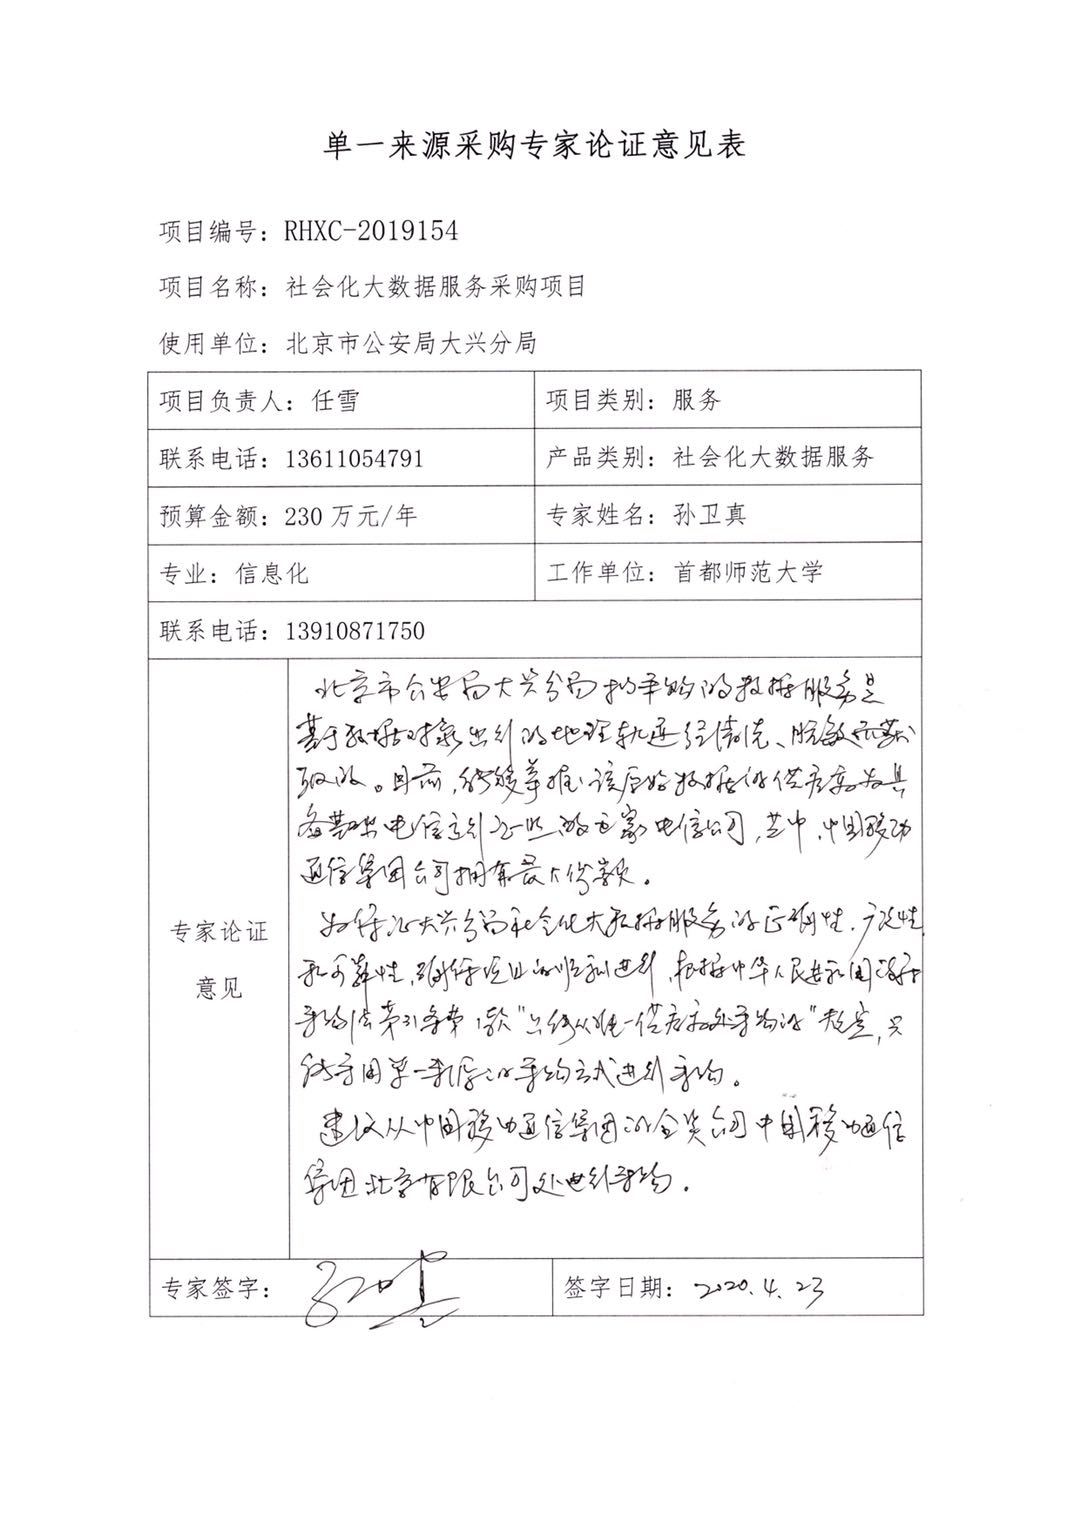 单一来源采购专家论证意见表
项目编号：RHXC-2019154
项目名称：社会化大数据服务采购项目
使用单位：北京市公安局大兴分局
项目负责人：任雪
项目类别：服务
联系电话：13611054791
产品类别：社会化大数据服务
预算金额：230万元/年
专家姓名：孙卫真
专业：信息化
工作单位：首都师范大学
联系电话：13910871750
专家论证
意见
北京市公安局大兴分局拟采购的数据服务是
基于数据对象出行的地理轨迹经清洗、脱敏而
取的。目前，能够掌握该原始数据的供应商为具
备基础电信运行的电信公司，其中，中国移动
通信集团公司拥有最大份额。
为保证大兴分局社会化大数据服务的正确性，广泛性
和可靠性，确保项目的顺利进行，根据中华人民共和国政府
采购法第31条第1款“只能从唯一供应商处采购的”规定，只
能采用单一来源的采购方式进行采购。
建议从中国移动通信集团的全资公司中国移动通信
集团北京有限公司处进行采购。
专家签字：
签字日期：2020.4.23